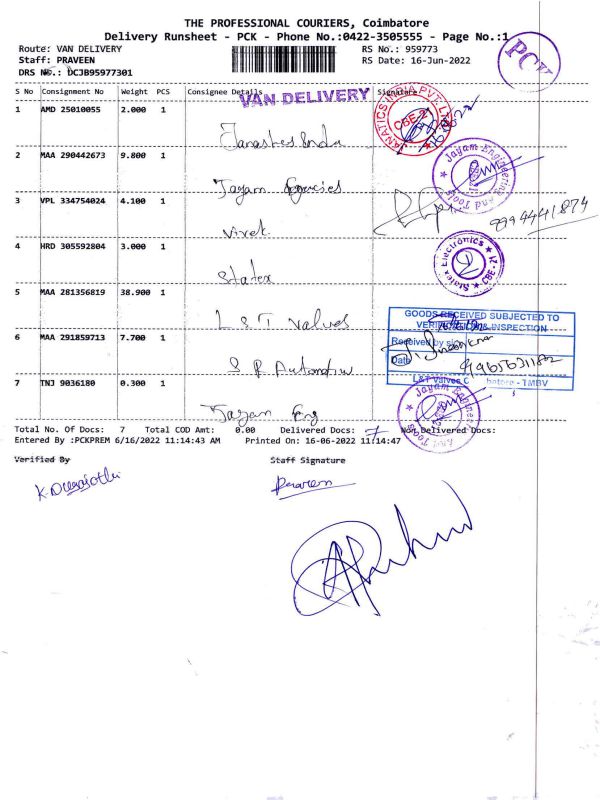 THE PROFESSIONAL COURIERS, Coimbatore
Delivery Runsheet - PCK - Phone No.:0422-3505555 - Page No.:1
Route: VAN DELIVERY RS No.: 959773
Staff: PRAVEEN RS Date: 16-Jun-2022
DRS No.: DCJB95977301
PCK
S No Consignment No Weight PCS Consignee Details Signature
VAN DELIVERY
1 AMD 25010055 2.000 1
CBE-2
2 MAA 290442673 9.800 1
Jayam Agencies
Jayam Engineering And Tools
3 VPL 334754024 4.100 1
Vivek
9994441874
4 HRD 305592804 3.000 1
Statex
Statex Electronics CBE-21
5 MAA 281356819 38.900 1
L & T Valves
GOODS RECEIVED SUBJECTED TO
VERIFICATION & INSPECTION
Received by sign
Date
L&T Valves Coimbatore - TMBV
6 MAA 291859713 7.700 1
S P Automotive
7 TNJ 9036180 0.300 1
Jayam Eng
Jayam Engineering And Tools
Total No. Of Docs: 7 Total COD Amt: 0.00 Delivered Docs: 7 Non Delivered Docs:
Entered By :PCKPREM 6/16/2022 11:14:43 AM Printed On: 16-06-2022 11:14:47
Verified By Staff Signature
Praveen